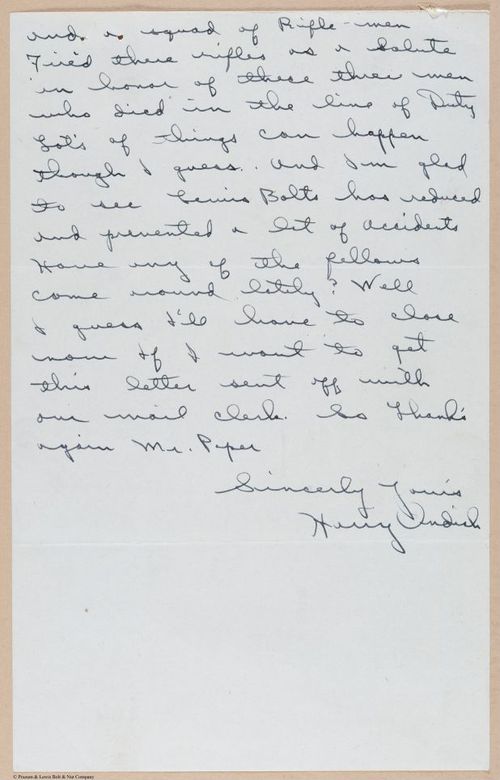 and a squad of Rifle-men
Fire'd there rifles as a Salute
in honor of these three men
who died in the line of Duty
Lot's of things can happen
though I guess.. And I'm glad
to see Lewis Bolts has reduced
and prevented a lot of accidents
Have any of the fellows
come around lately? Well
I guess I'll have to close
now If I want to get
this letter sent off with
our mail clerk. So Thank's
again Mr. Piper
Sincerly Your's
Harry Andish
© Preston & Lewis Bolt & Nut Company